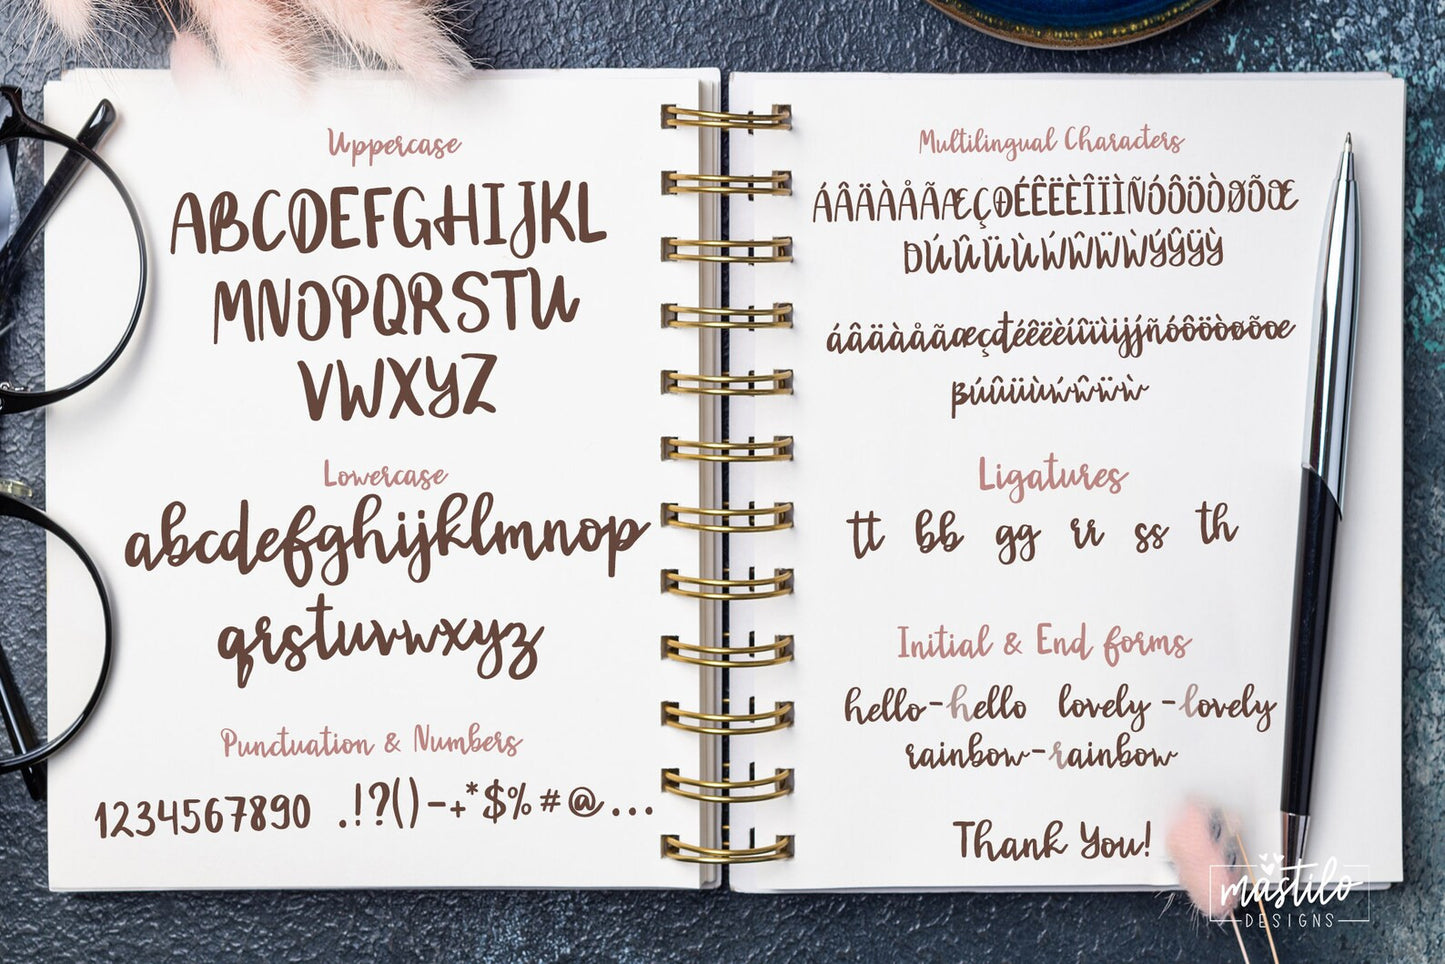 Uppercase
ABCDEFGHIJKL
MNOPQRSTU
VWXYZ
Lowercase
abcdefghijklmnop
qrstuvwxyz
Punctuation & Numbers
1234567890 .!?()-+*$%#@...
Multilingual Characters
ÁÂÄÀÅÃÆÇÐÉÊËÈÎÏÌÑÓÔÖÒØÕŒ
ÞÚÛÜÙẂŴẄẀÝŶŸỲ
áâäàåãæçđéêëèíîïìijj́ñóôöòøõœ
βúûüùẃŵẅẁ
Ligatures
tt bb gg rr ss th
Initial & End forms
hello-hello lovely-lovely
rainbow-rainbow
Thank You!
mastilo
DESIGNS